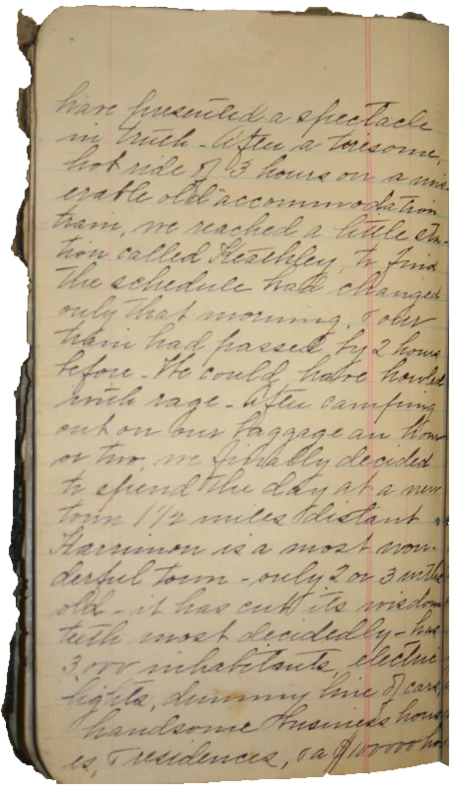 have presented a spectacle
in truth - After a tiresome,
hot ride of 3 hours on a mis-
erable old "accommodation
train, we reached a little sta-
tion called Keathley, to find
the schedule had changed
only that morning, & our
train had passed by 2 hours
before - We could have howled
with rage - After camping
out on our baggage an hour
or two, we finally decided
to spend the day at a new
town 1 1/2 miles distant
Harrimon is a most won-
derful town - only 2 or 3 mnths
old - it has cut its wisdom
teeth most decidedly - has
3,000 inhabitants, electric
lights, dummy line of cars,
handsome business hous-
es, & residences, & a $100000 ho